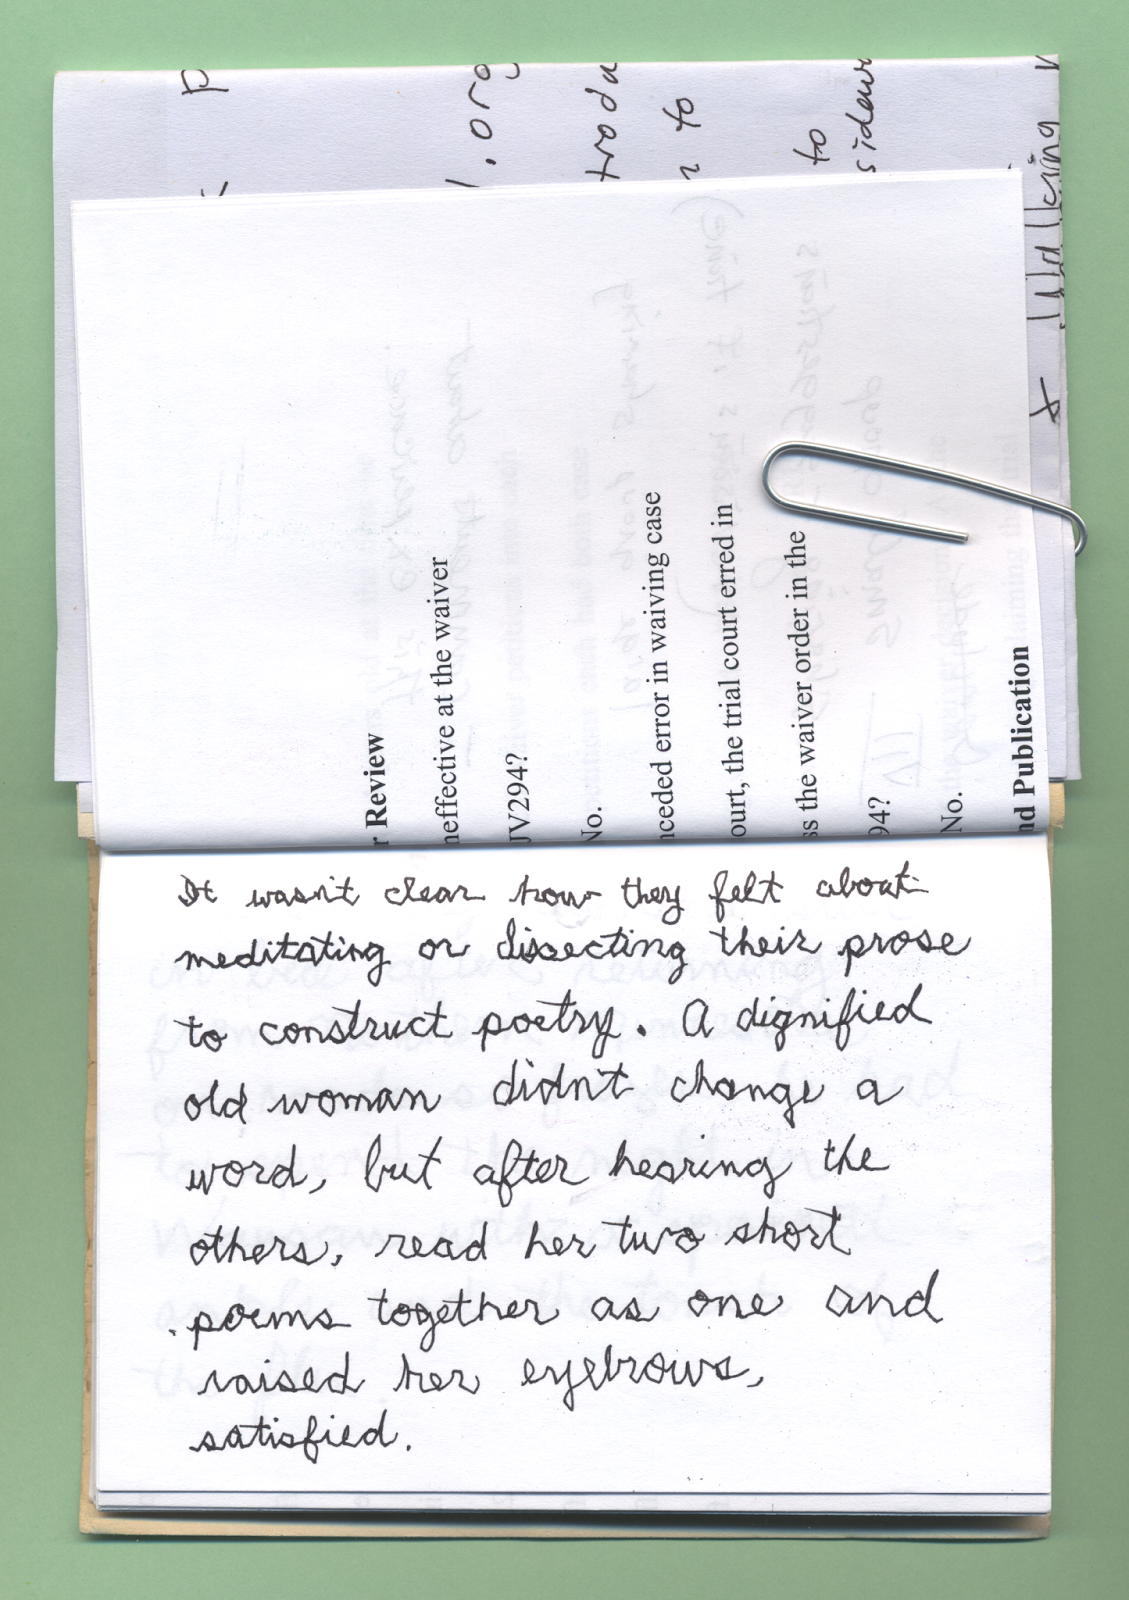 . org
to
to
Walking
r Review
neffective at the waiver
JV294?
No.
nceded error in waiving case
ourt, the trial court erred in
ss the waiver order in the
94?
No.
nd Publication
It wasn't clear how they felt about
meditating or dissecting their prose
to construct poetry. A dignified
old woman didn't change a
word, but after hearing the
others, read her two short
poems together as one and
raised her eyebrows,
satisfied.